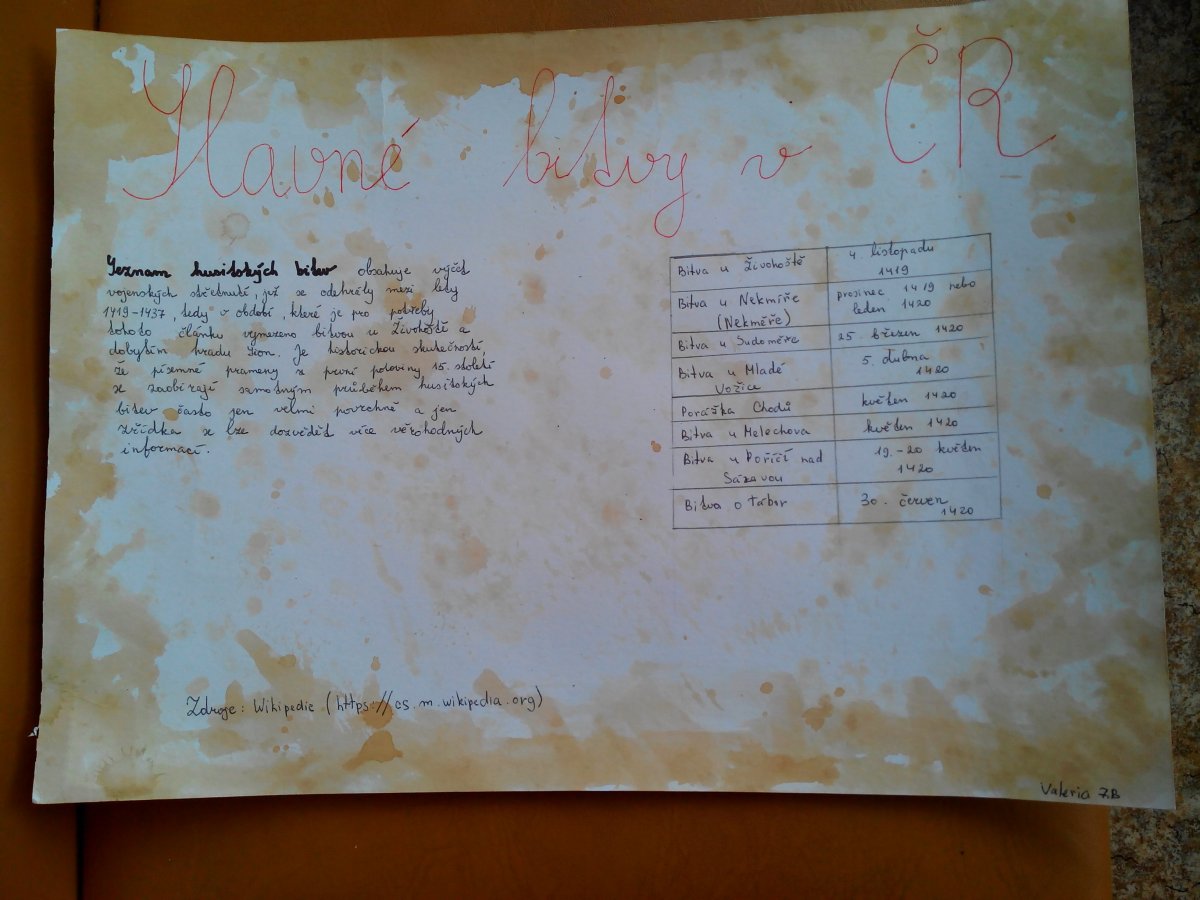 Hlavné bitvy v ČR
Seznam husitských bitev obsahuje výčet
vojenských střetnutí, jež se odehrály mezi lety
1419-1437, tedy v období, které je pro potřeby
tohoto článku vymezeno bitvou u Živohoště a
dobytím hradu Sion. Je historickou skutečností,
že písemné prameny z první poloviny 15. století
se zaobírají samotným průběhem husitských
bitev často jen velmi povrchně a jen
zřídka se lze dozvědět více věrohodných
informací.
Bitva u Živohoště
4. listopadu
1419
Bitva u Nekmíře
(Nekměře)
prosinec 1419 nebo
leden 1420
Bitva u Sudoměře
25. březen 1420
Bitva u Mladé
Vožice
5. dubna
1420
Porážka Chodů
květen 1420
Bitva u Melechova
květen 1420
Bitva u Poříčí nad
Sázavou
19.-20 květen
1420
Bitva o Tábor
30. červen
1420
Zdroje: Wikipedie (https://cs.m.wikipedia.org)
Valeria 7.B